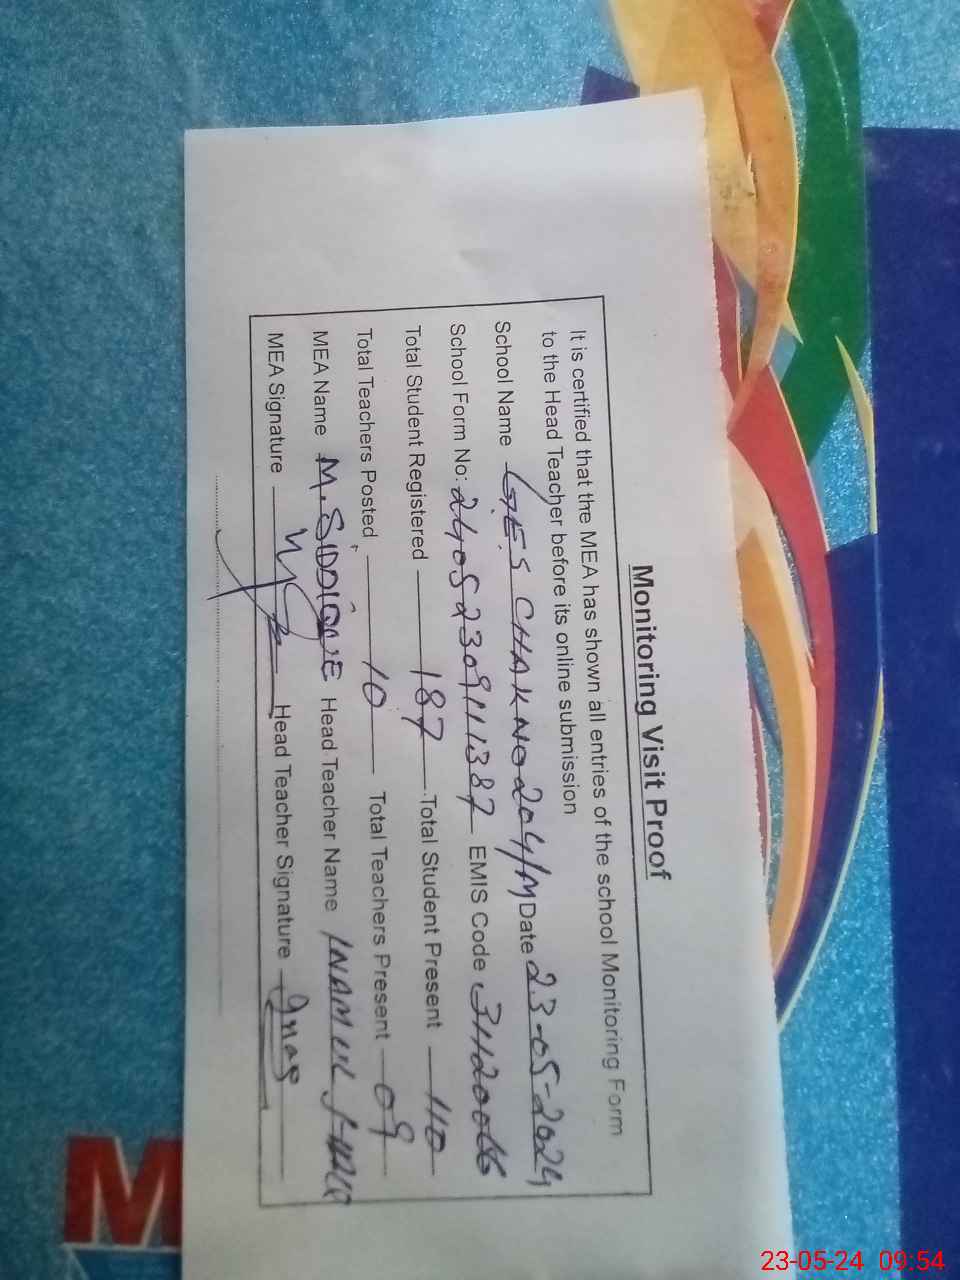 Monitoring Visit Proof
It is certified that the MEA has shown all entries of the school Monitoring Form
to the Head Teacher before its online submission
School Name G.E.S CHAK NO 204/M Date 23-05-2024
School Form No: 2405230911387 EMIS Code 31120066
Total Student Registered 187 Total Student Present 110
Total Teachers Posted 10 Total Teachers Present 09
MEA Name M. SIDDIQUE Head Teacher Name INAM UL HAQ
MEA Signature Head Teacher Signature
M
23-05-24 09:54